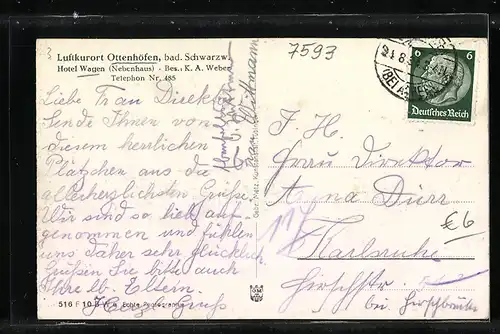 Luftkurort Ottenhöfen, bad. Schwarzw.
Hotel Wagen (Nebenhaus) - Bes.: K. A. Weber
Telephon Nr. 485
Liebe Frau Direkt.
Sende Ihnen von
diesem herrlichen
Plätzchen aus die
allerherzlichsten Grüße.
Wir sind so lieb auf-
genommen und fühlen
uns daher sehr glücklich.
Grüßen Sie bitte auch
Ihre lb. Eltern.
Herzl. Gruß
516 F 10
7593
6 6
Deutsches Reich
F. H.
Frau Direktor
Anna Dürr
Karlsruhe
Hirschstr.
bei Hirschbrücke
€6